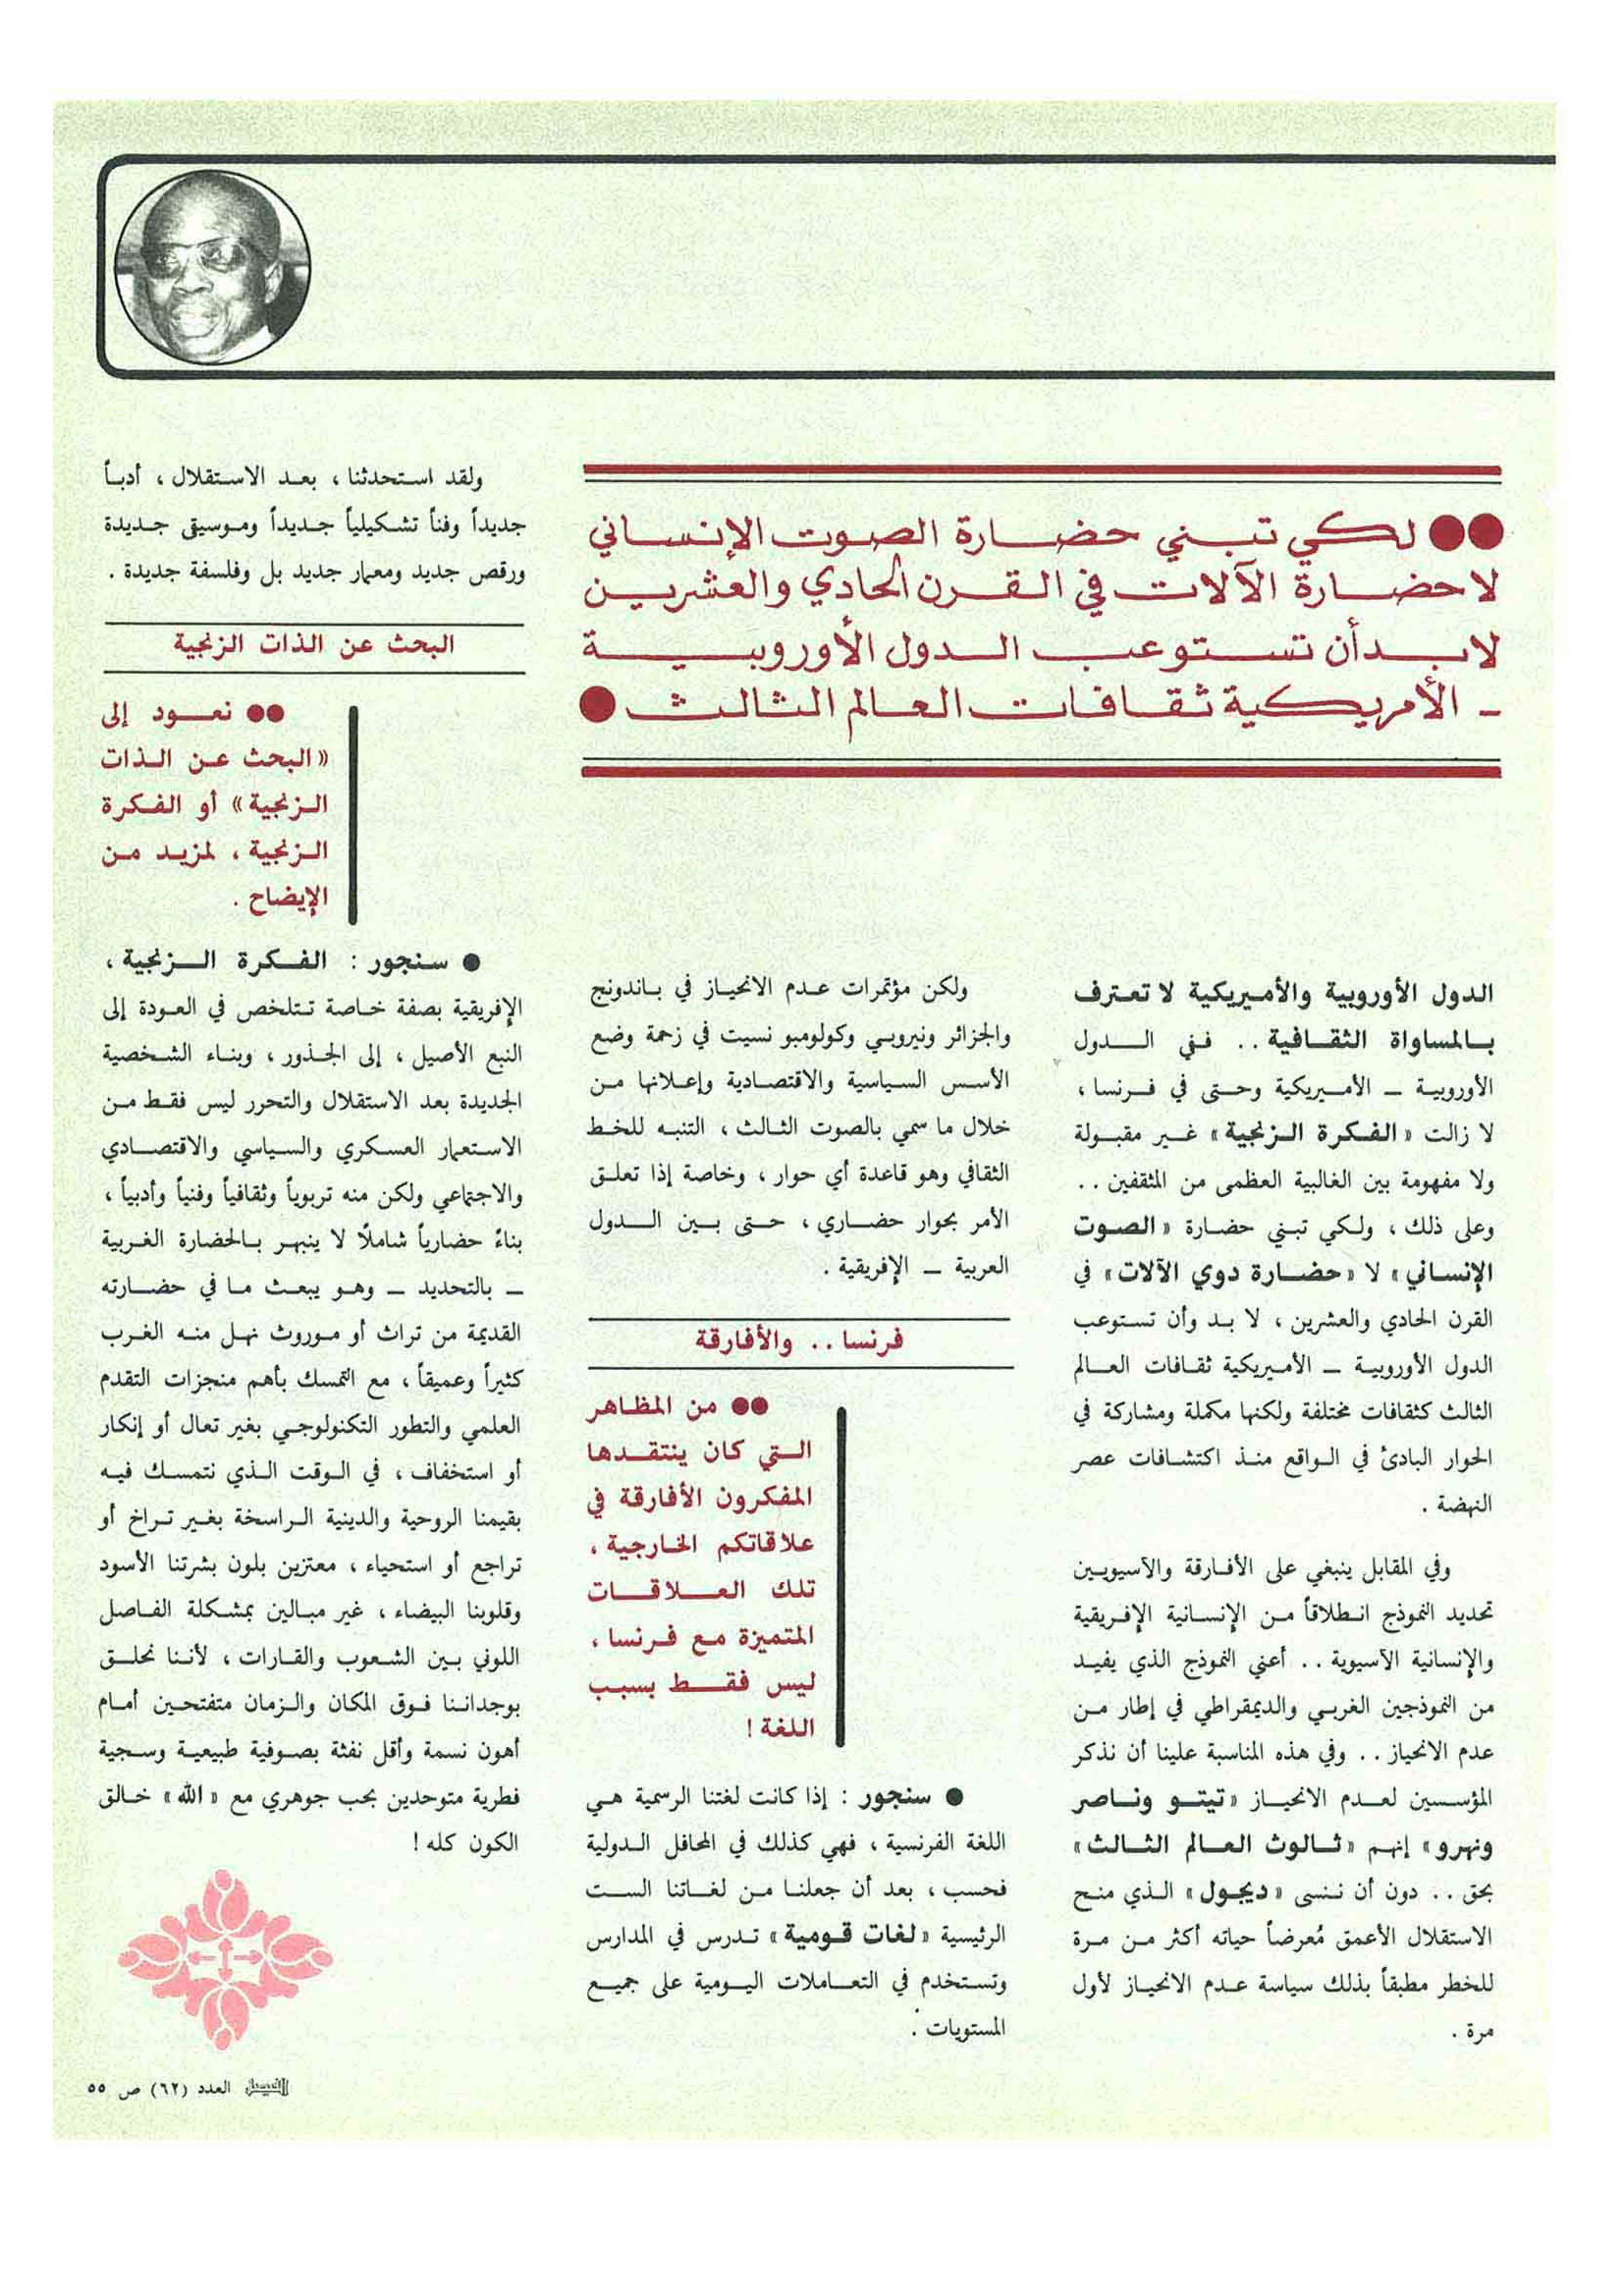 ●● لكي تبني حضارة الصوت الإنساني
لا حضارة الآلات في القرن الحادي والعشرين
لابد أن تستوعب الدول الأوروبية
ـ الأمريكية ثقافات العالم الثالث ●
الدول الأوروبية والأميريكية لا تعترف
بالمساواة الثقافية .. ففي الدول
الأوروبية ـ الأميريكية وحتى في فرنسا ،
لا زالت «الفكرة الزنجية» غير مقبولة
ولا مفهومة بين الغالبية العظمى من المثقفين ..
وعلى ذلك ، ولكي تبني حضارة «الصوت
الإنساني» لا «حضارة دوي الآلات» في
القرن الحادي والعشرين ، لا بد وأن تستوعب
الدول الأوروبية ـ الأميريكية ثقافات العالم
الثالث كثقافات مختلفة ولكنها مكملة ومشاركة في
الحوار البادئ في الواقع منذ اكتشافات عصر
النهضة .
وفي المقابل ينبغي على الأفارقة والآسيويين
تحديد النموذج انطلاقاً من الإنسانية الإفريقية
والإنسانية الآسيوية .. أعني النموذج الذي يفيد
من النموذجين الغربي والديمقراطي في إطار من
عدم الانحياز .. وفي هذه المناسبة علينا أن نذكر
المؤسسين لعدم الانحياز «تيتو وناصر
ونهرو» إنهم «ثالوث العالم الثالث»
بحق .. دون أن ننسى «ديجول» الذي منح
الاستقلال الأعمق مُعرضاً حياته أكثر من مرة
للخطر مطبقاً بذلك سياسة عدم الانحياز لأول
مرة .
ولكن مؤتمرات عدم الانحياز في باندونج
والجزائر ونيروبي وكولومبو نسيت في زحمة وضع
الأسس السياسية والاقتصادية وإعلانها من
خلال ما سمي بالصوت الثالث ، التنبه للخط
الثقافي وهو قاعدة أي حوار ، وخاصة إذا تعلق
الأمر بحوار حضاري ، حتى بين الدول
العربية ـ الإفريقية .
فرنسا .. والأفارقة
●● من المظاهر
التي كان ينتقدها
المفكرون الأفارقة في
علاقاتكم الخارجية ،
تلك العلاقات
المتميزة مع فرنسا ،
ليس فقط بسبب
اللغة !
● سنجور : إذا كانت لغتنا الرسمية هي
اللغة الفرنسية ، فهي كذلك في المحافل الدولية
فحسب ، بعد أن جعلنا من لغاتنا الست
الرئيسية «لغات قومية» تدرس في المدارس
وتستخدم في التعاملات اليومية على جميع
المستويات .
ولقد استحدثنا ، بعد الاستقلال ، أدباً
جديداً وفناً تشكيلياً جديداً وموسيقى جديدة
ورقص جديد ومعمار جديد بل وفلسفة جديدة .
البحث عن الذات الزنجية
●● نعود إلى
«البحث عن الذات
الزنجية» أو الفكرة
الزنجية ، لمزيد من
الإيضاح .
● سنجور : الفكرة الزنجية ،
الإفريقية بصفة خاصة تتلخص في العودة إلى
النبع الأصيل ، إلى الجذور ، وبناء الشخصية
الجديدة بعد الاستقلال والتحرر ليس فقط من
الاستعمار العسكري والسياسي والاقتصادي
والاجتماعي ولكن منه تربوياً وثقافياً وفنياً وأدبياً ،
بناءً حضارياً شاملًا لا ينبهر بالحضارة الغربية
ـ بالتحديد ـ وهو يبعث ما في حضارته
القديمة من تراث أو موروث نهل منه الغرب
كثيراً وعميقاً ، مع التمسك بأهم منجزات التقدم
العلمي والتطور التكنولوجي بغير تعال أو إنكار
أو استخفاف ، في الوقت الذي نتمسك فيه
بقيمنا الروحية والدينية الراسخة بغير تراخ أو
تراجع أو استحياء ، معتزين بلون بشرتنا الأسود
وقلوبنا البيضاء ، غير مبالين بمشكلة الفاصل
اللوني بين الشعوب والقارات ، لأننا نحلق
بوجداننا فوق المكان والزمان متفتحين أمام
أهون نسمة وأقل نفثة بصوفية طبيعية وسجية
فطرية متوحدين بحب جوهري مع «الله» خالق
الكون كله !
الفيصل العدد (٦٢) ص ٥٥